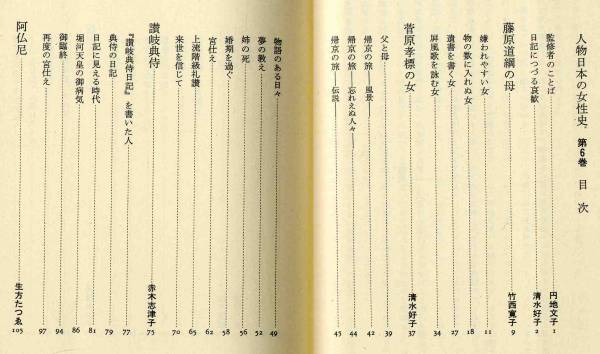 人物日本の女性史 第6巻 目次
監修者のことば 円地文子 1
日記につづる哀歓 清水好子 2
藤原道綱の母 竹西寛子 9
嫌われやすい女 11
物の数に入れぬ女 18
遺書を書く女 27
屏風歌を詠む女 34
菅原孝標の女 清水好子 37
父と母 39
帰京の旅―風景― 42
帰京の旅―忘れえぬ人々― 44
帰京の旅―伝説 45
物語のある日々 49
夢の教え 52
姉の死 56
婚期を過ぐ 58
宮仕え 62
上流階級礼讃 65
来世を信じて 70
讃岐典侍 赤木志津子 75
『讃岐典侍日記』を書いた人 77
典侍の日記 79
日記に見える時代 81
堀河天皇の御病気 86
御臨終 94
再度の宮仕え 97
阿仏尼 生方たつゑ 105